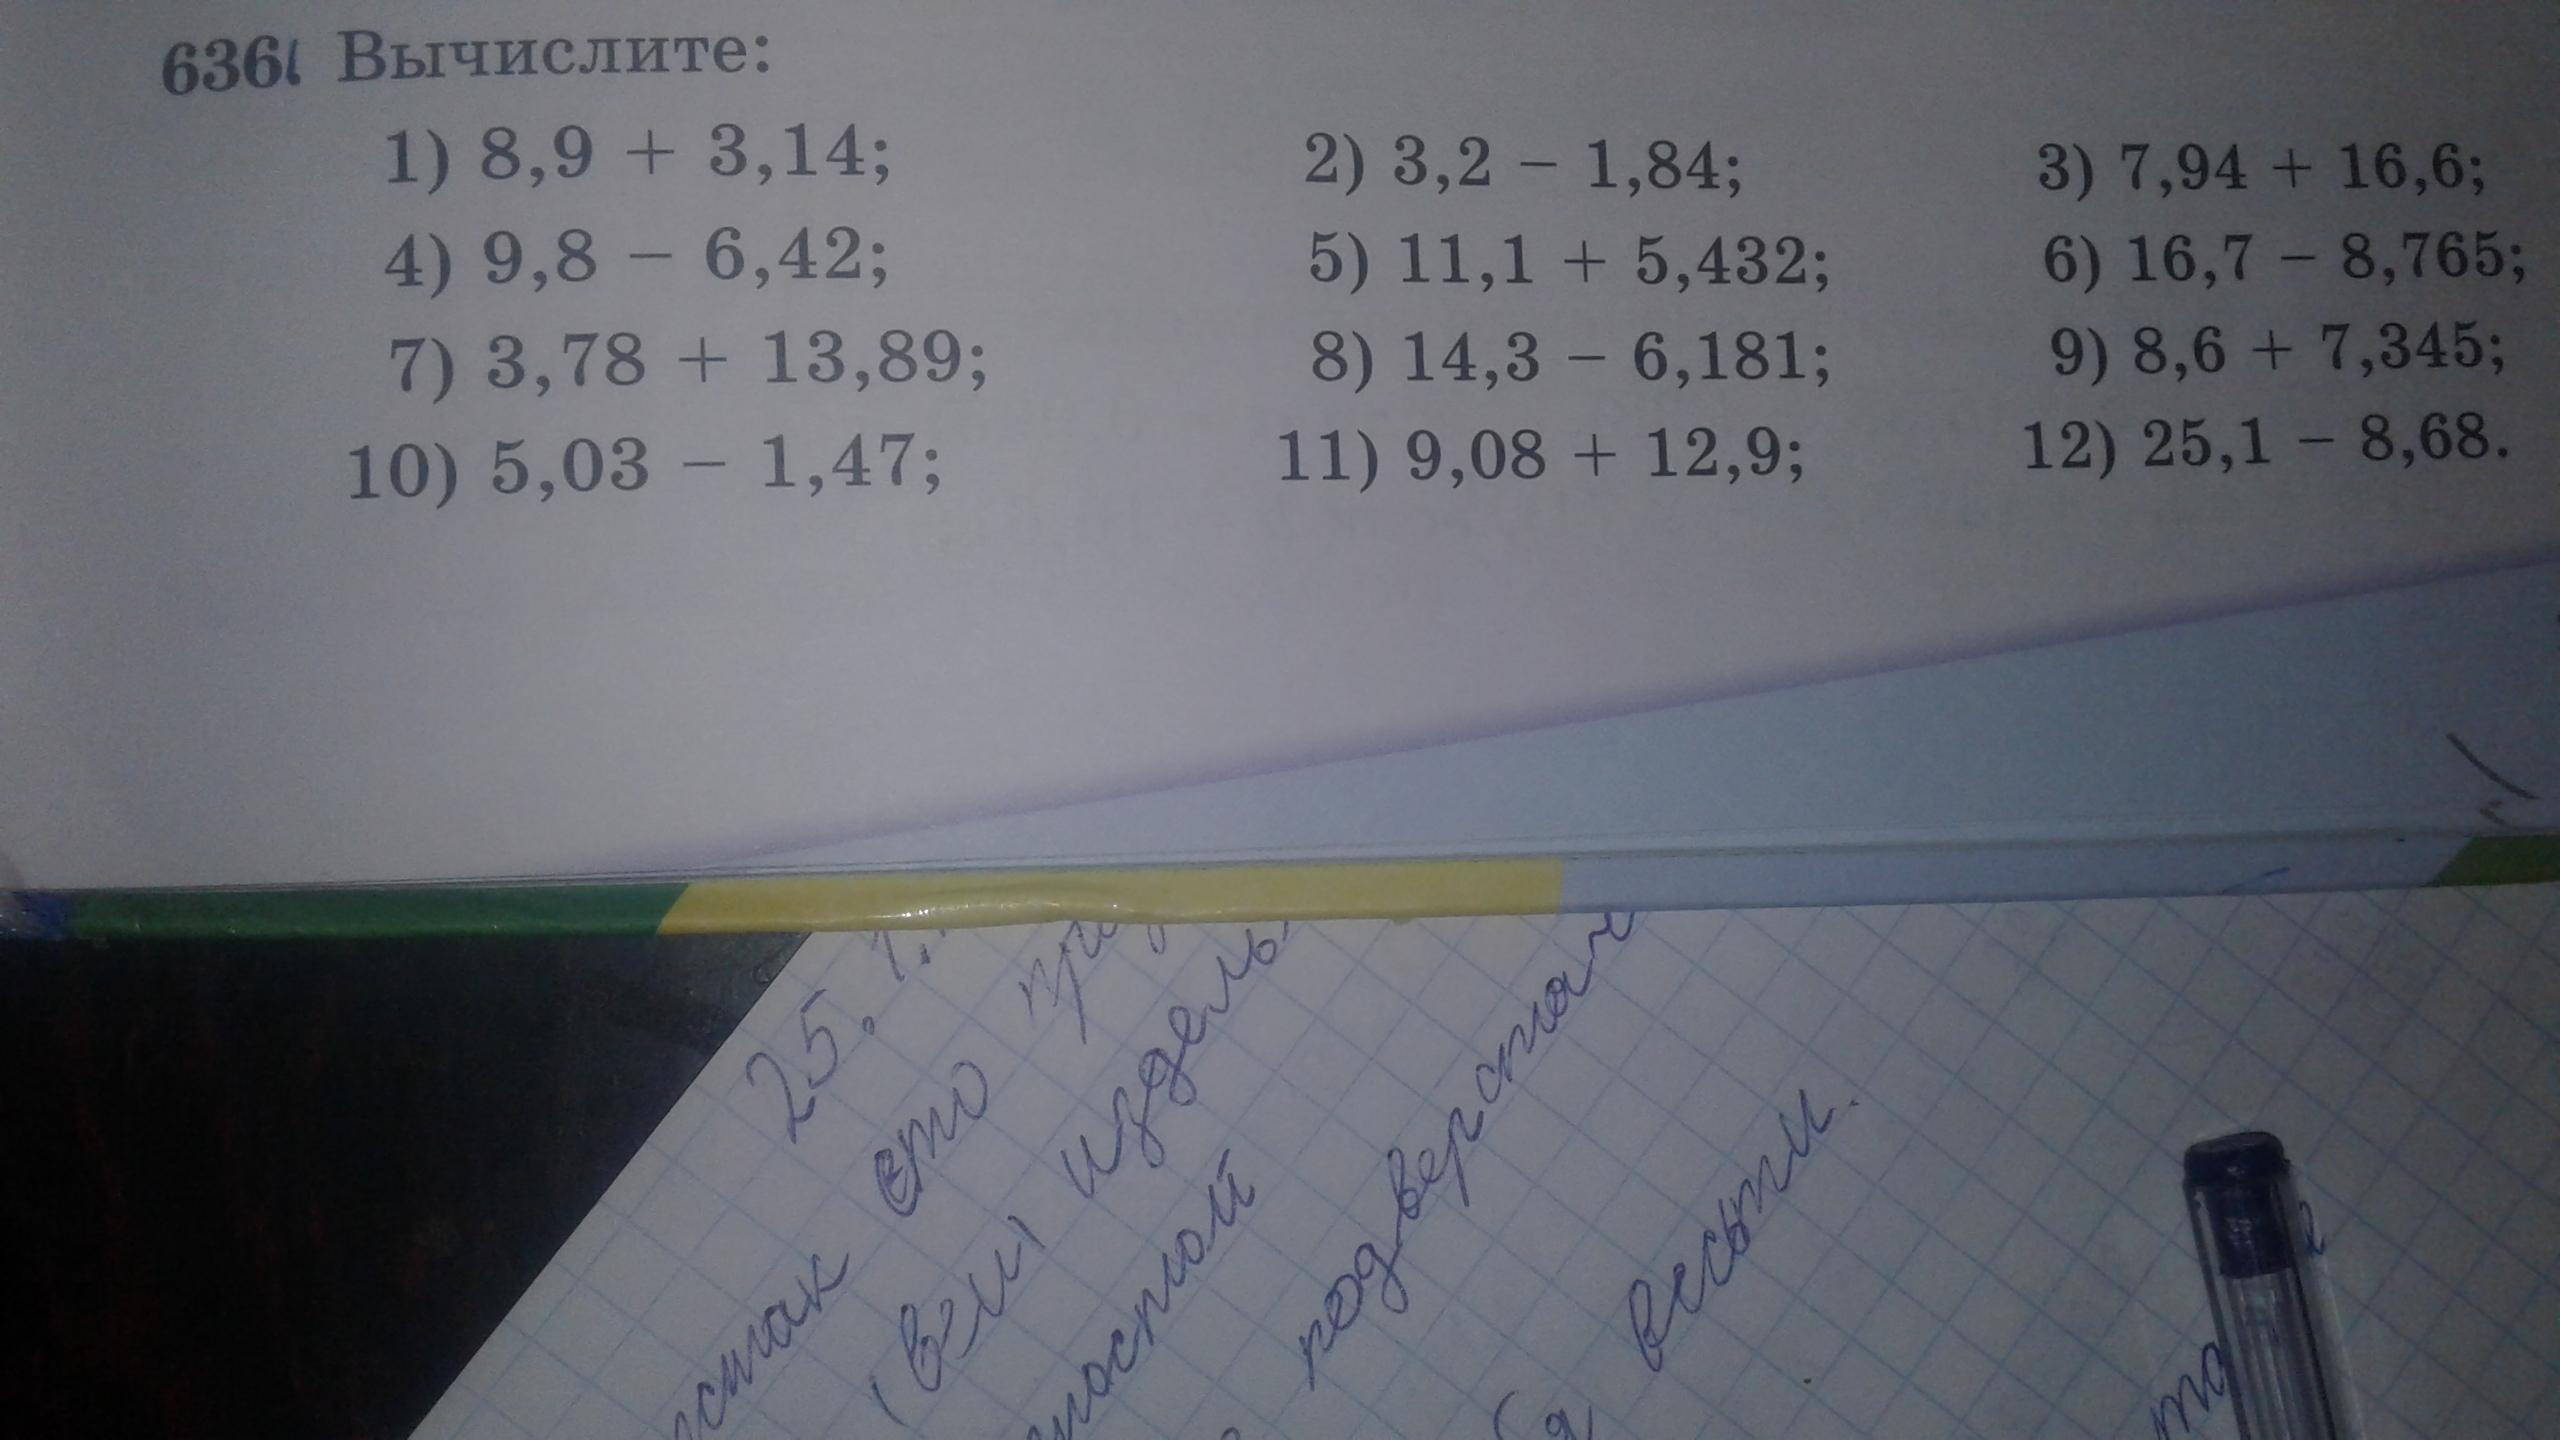 636. Вычислите:
1) 8,9 + 3,14; 2) 3,2 − 1,84; 3) 7,94 + 16,6;
4) 9,8 − 6,42; 5) 11,1 + 5,432; 6) 16,7 − 8,765;
7) 3,78 + 13,89; 8) 14,3 − 6,181; 9) 8,6 + 7,345;
10) 5,03 − 1,47; 11) 9,08 + 12,9; 12) 25,1 − 8,68.
25.
это
подверстач